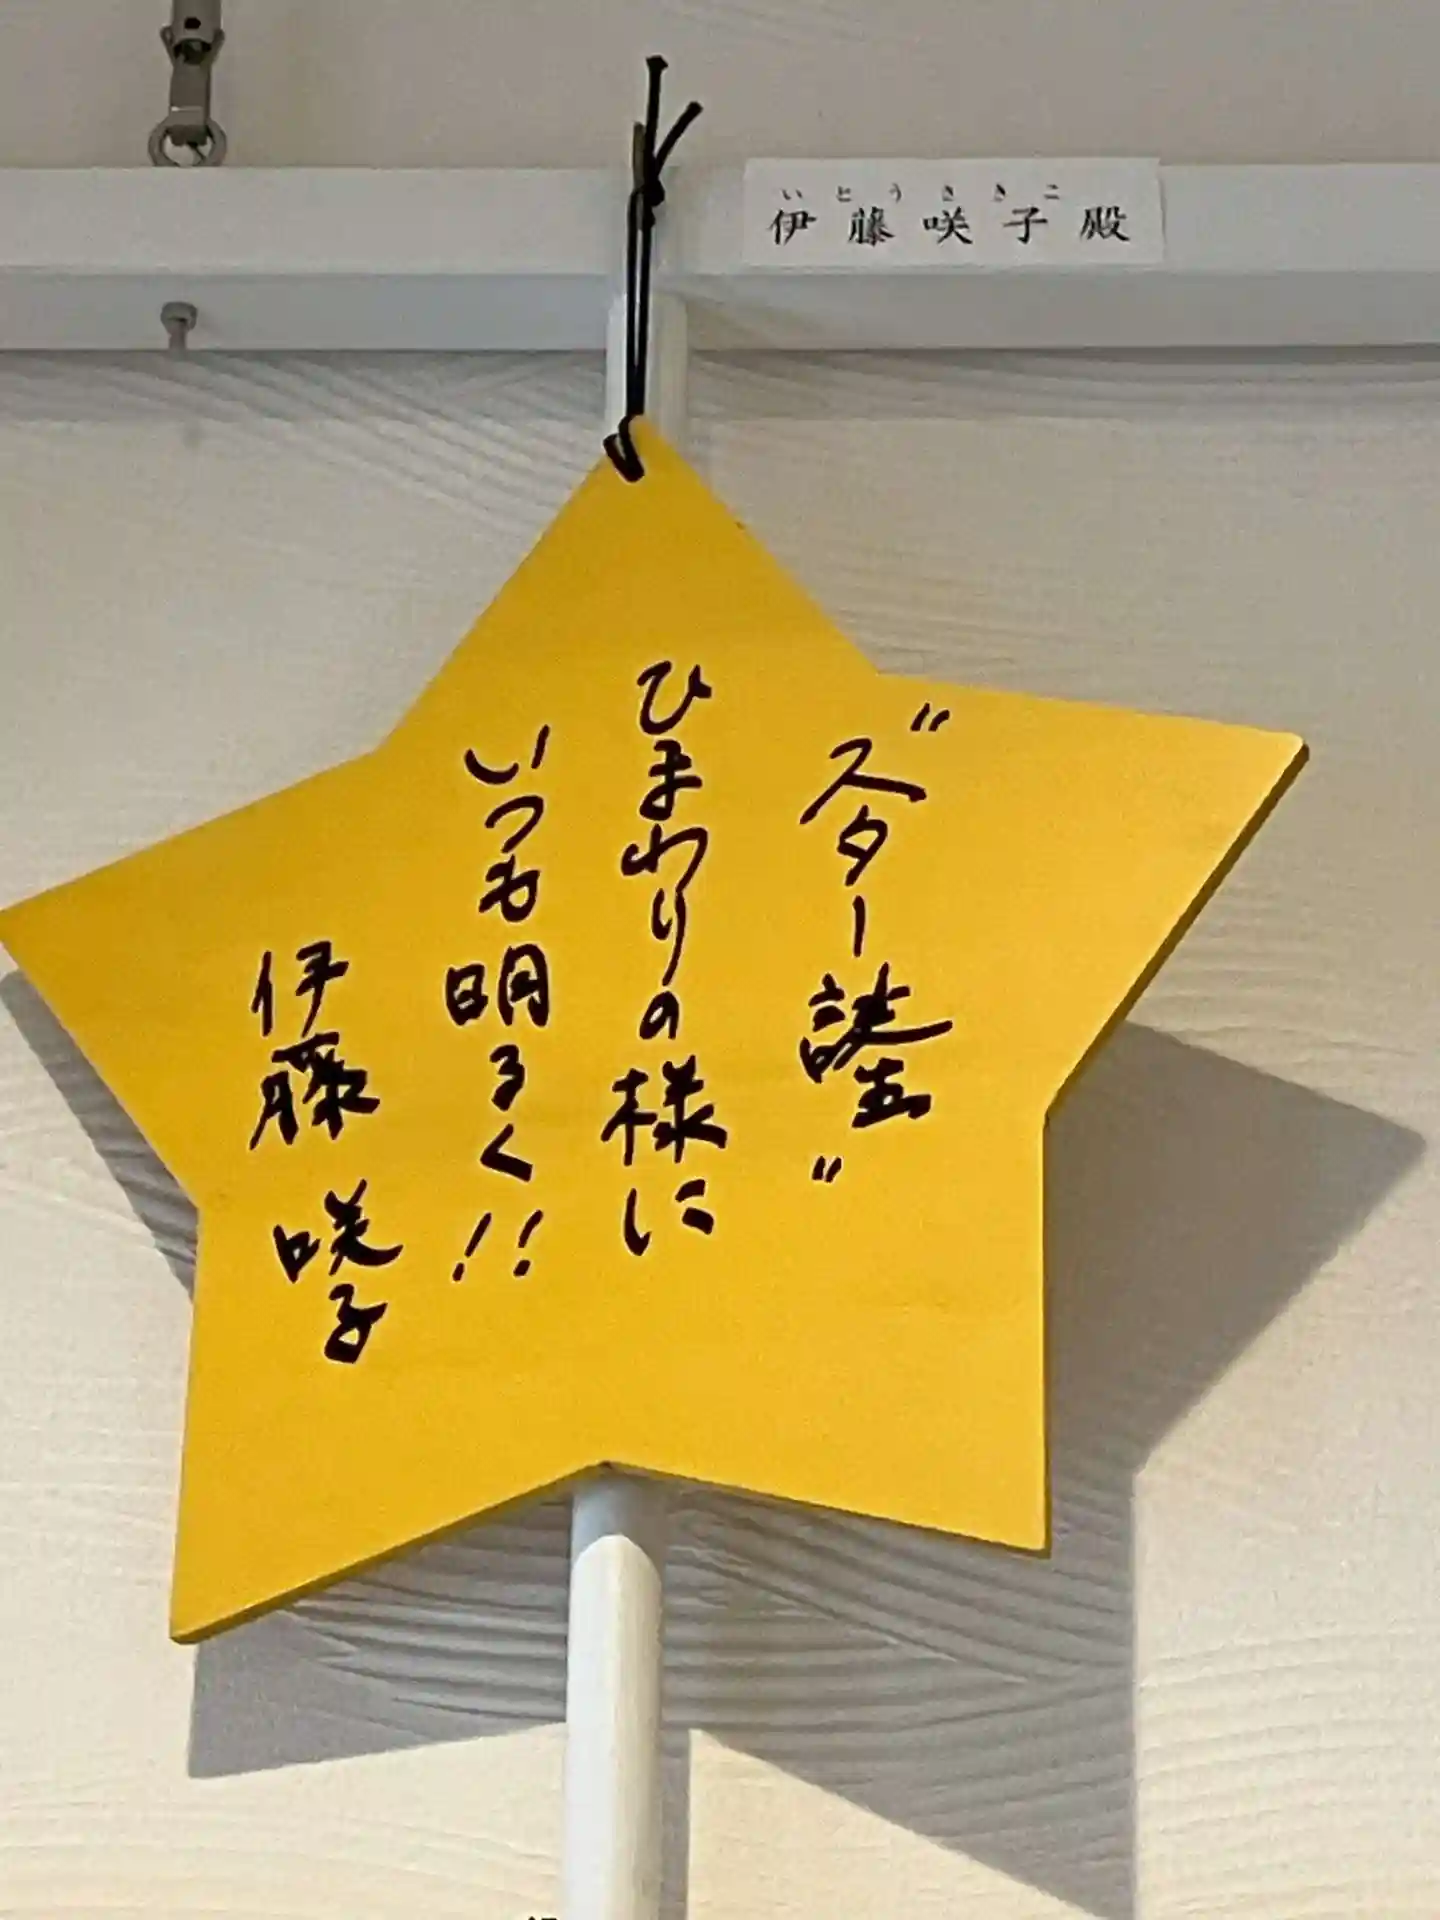 いとうさきこ
伊藤咲子殿
"スター誕生"
ひまわりの様に
いつも明るく!!
伊藤咲子